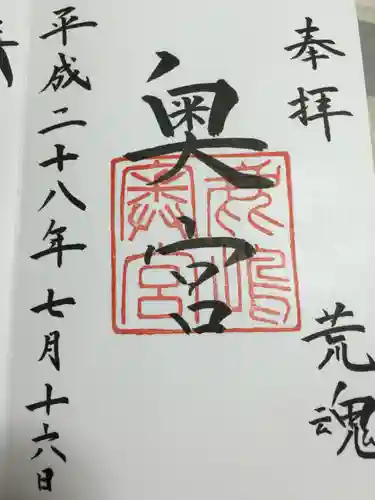 奉拝
荒魂
奥宮
平成二十八年七月十六日